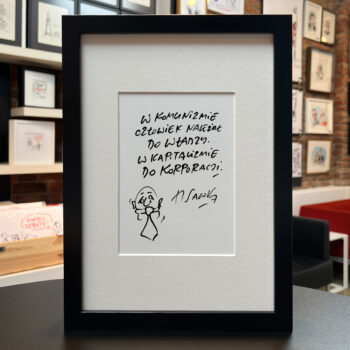 W KOMUNIZMIE
CZŁOWIEK NALEŻAŁ
DO WŁADZY.
W KAPITALIZMIE
DO KORPORACJI.